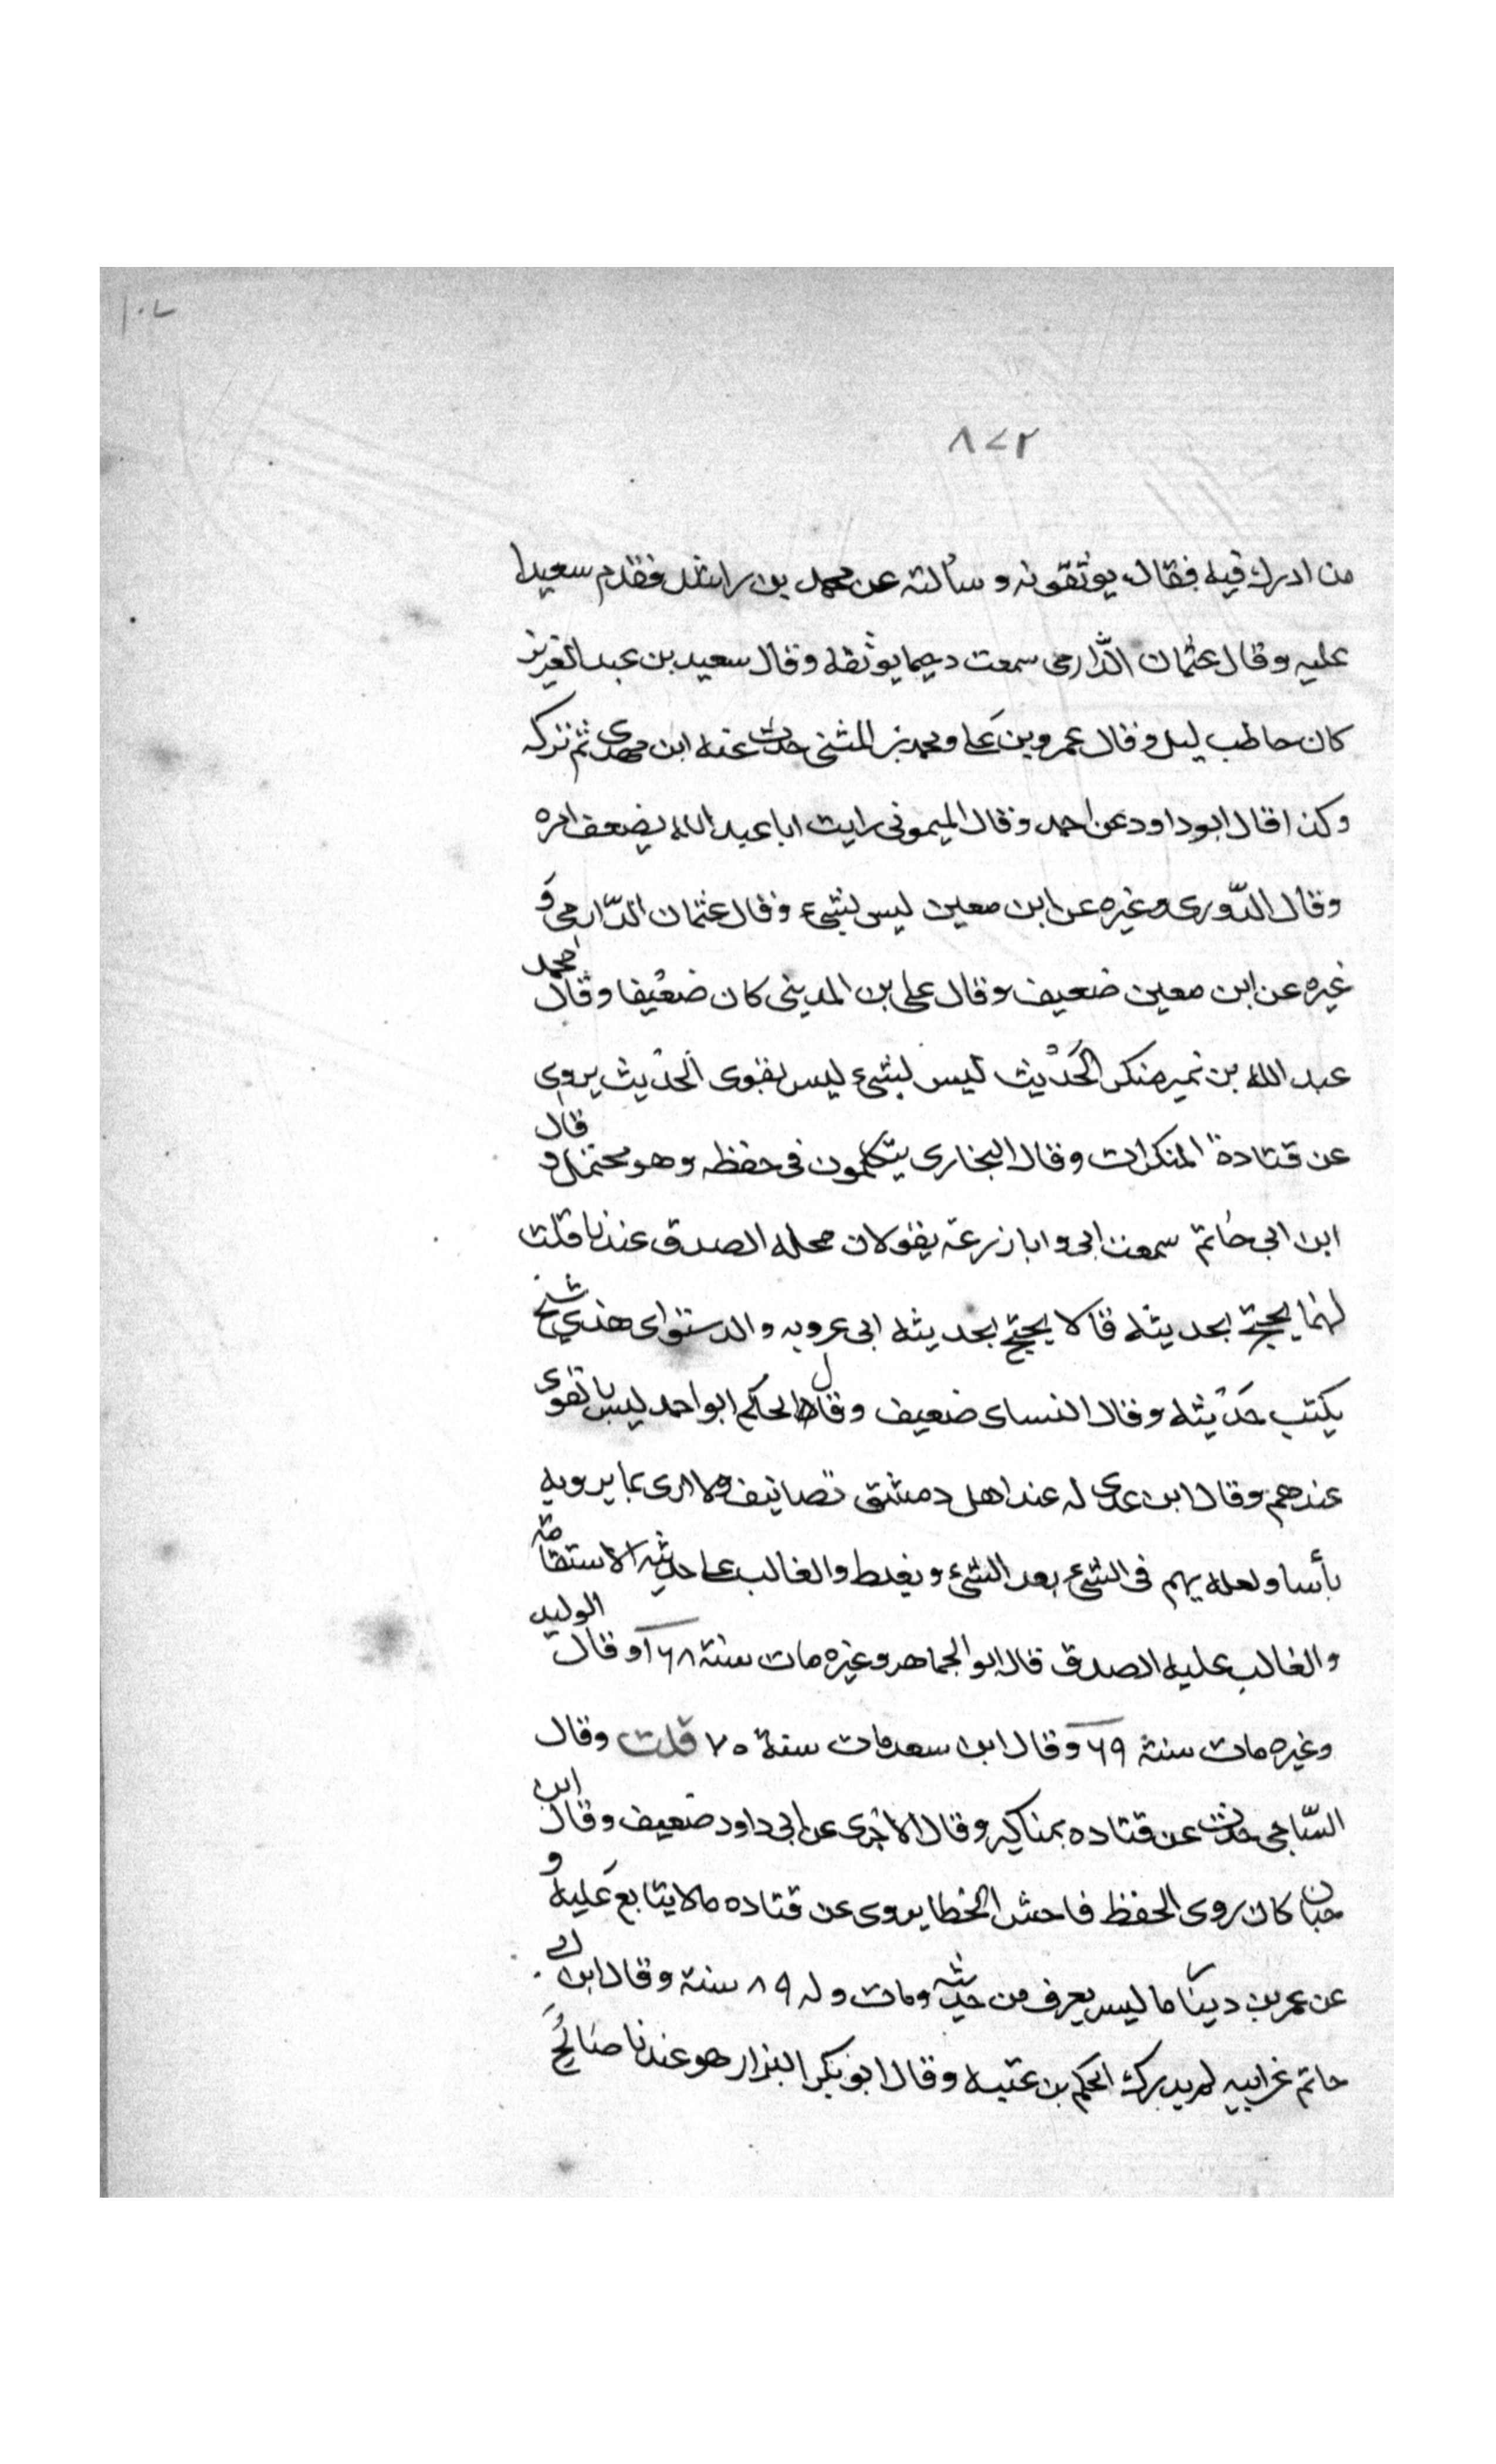 ١٠٧
٨٧٢
من ادرك فيه فقال يوثقونه وسألته عن محمد بن راشد فقدم سعيدا
عليه وقال عثمان الدّارمى سمعت دحيما يوثقه وقال سعيد بن عبد العزيز
كان حاطب ليل وقال عمرو بن على ومحمد بن المثنى حدث عنه ابن مهدى ثم تركه
وكذا قال ابو داود عن احمد وقال الميمونى رايت ابا عبد الله يضعف امره
وقال الدّورى وغيره عن ابن معين ليس بشىء وقال عثمان الدّارمى و
غيره عن ابن معين ضعيف وقال على بن المدينى كان ضعيفا وقال محمد
عبد الله بن نمير منكر الحديث ليس بشىء ليس بقوى الحديث يروى
عن قتادة المنكرات وقال البخارى يتكلمون فى حفظه وهو محتمل و قال
ابن ابى حاتم سمعت ابى وابا زرعة يقولان محله الصدق عندنا قلت
لهما يحتج بحديثه قالا يحتج بحديثه ابى عروبه والدستواى هذى شيخ
يكتب حديثه وقال النساى ضعيف وقال الحاكم ابو احمد ليس بالقوى
عندهم وقال ابن عدى له عند اهل دمشق تصانيف ولا ارى بما يرويه
بأسا ولعله يهم فى الشىء بعد الشىء ويغلط والغالب على حديثه الاستقامة
والغالب عليه الصدق قال ابو الجماهر وغيره مات سنة ١٦٨ وقال الوليد
وغيره مات سنة ٦٩ وقال ابن سعد مات سنة ٧٠ قلت وقال
السّاجى حدث عن قتاده بمناكير وقال الاجرى عن ابى داود ضعيف وقال ابن
حبان كان روى الحفظ فاحش الخطا يروى عن قتاده مالا يتابع عليه و
عن عمر بن دينار ما ليس يعرف من حديثه ومات وله ٨٩ سنة وقال ابن ابى
حاتم عن ابيه لم يدرك الحكم بن عتيبه وقال ابو بكر البزار هو عندنا صالح